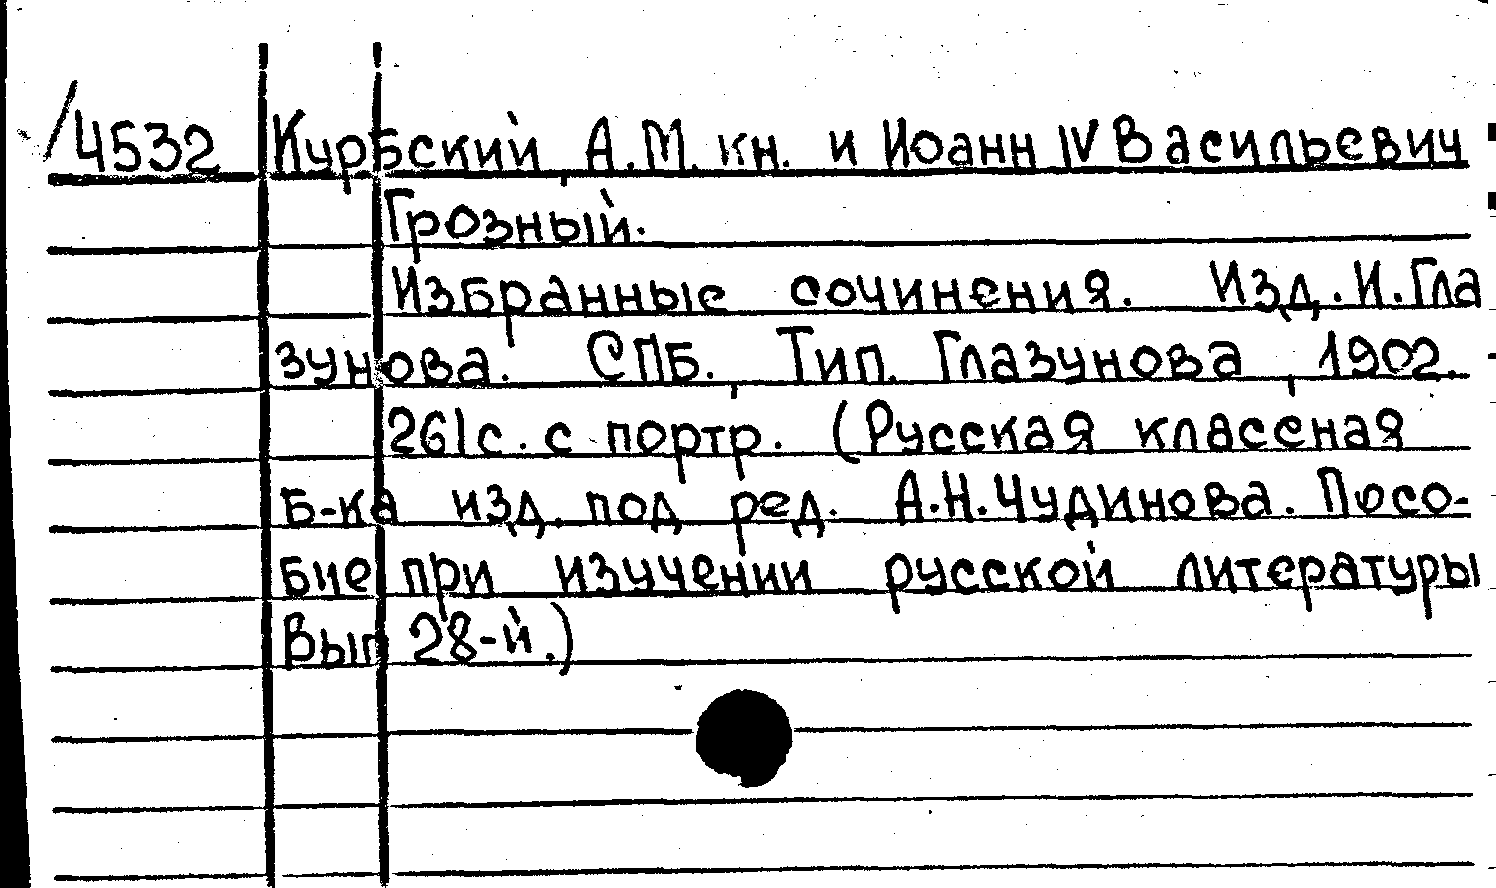 /4532 Курбский, А.М. кн. и Иоанн IV Васильевич
Грозный.
Избранные сочинения. Изд. И. Гла
зунова. СПБ., Тип. Глазунова, 1902.
261с. с портр. (Русская классная
б-ка изд. под ред. А.Н. Чудинова. Посо-
бие при изучении русской литературы
Вып 28-й.)